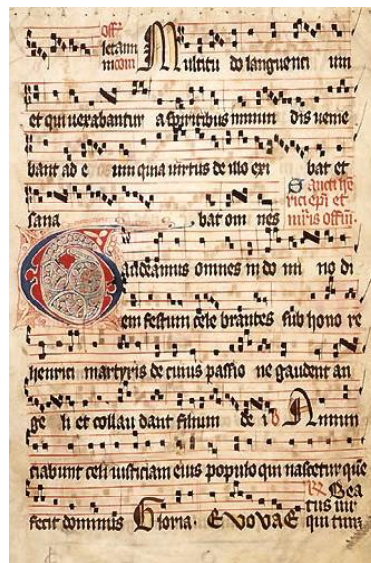 Off.
letamini com Multitu do languenci um
et qui vexabantur a spiritibus inmun dis venie
bant ad e um quia virtus de illo exi bat et
sana bat om nes
Sancti he
rici epi et
mris offm.
Gaudeamus omnes in do mi no di
em festum cele brantes sub hono re
henrici martyris de cuius passio ne gaudent an
ge li et collau dant filium de i Annun
ciabunt celi iusticiam eius populo qui nascetur que
fecit dominus Gloria. Evovae
Bea
tus vir
qui tim